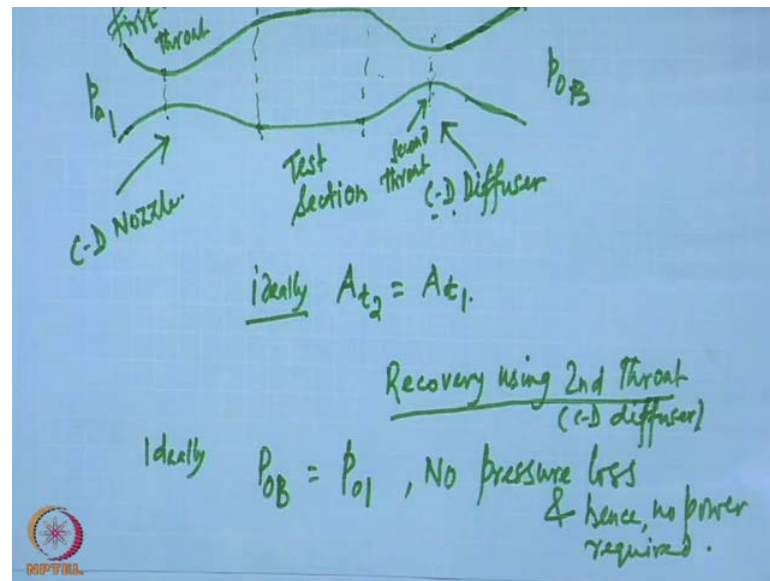 First
throat
P01
P0B
C-D Nozzle.
Test
Section
second
throat
C-D Diffuser
ideally At2 = At1.
Recovery using 2nd Throat
(C-D diffuser)
Ideally P0B = P01, No pressure loss
& hence, no power
required.
NPTEL